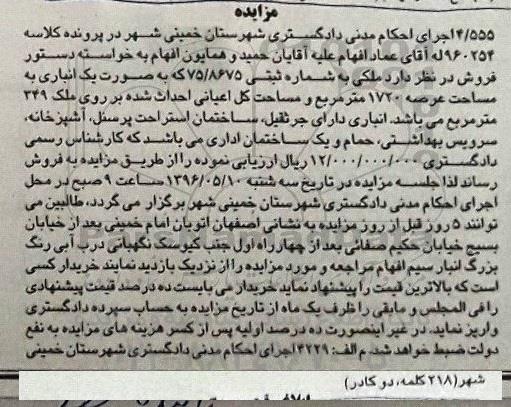 مزایده
۴/۵۵۵ اجرای احکام مدنی دادگستری شهرستان خمینی شهر در پرونده کلاسه
۹۶۰۲۵۴ له آقای عماد افهام علیه آقایان حمید و همایون افهام به خواسته دستور
فروش در نظر دارد ملکی به شماره ثبتی ۷۵/۸۶۷۵ که به صورت یک انباری به
مساحت عرصه ۱۷۲۰ مترمربع و مساحت کل اعیانی احداث شده بر روی ملک ۳۴۹
مترمربع می باشد. انباری دارای جرثقیل، ساختمان استراحت پرسنل، آشپزخانه،
سرویس بهداشتی، حمام و یک ساختمان اداری می باشد که کارشناس رسمی
دادگستری ۱۲/۰۰۰/۰۰۰/۰۰۰ ریال ارزیابی نموده را از طریق مزایده به فروش
رساند لذا جلسه مزایده در تاریخ سه شنبه ۱۳۹۶/۰۵/۱۰ ساعت ۹ صبح در محل
اجرای احکام مدنی دادگستری شهرستان خمینی شهر برگزار می گردد، طالبین می
توانند ۵ روز قبل از روز مزایده به نشانی اصفهان اتوبان امام خمینی بعد از خیابان
بسیج خیابان حکیم صفائی بعد از چهارراه اول جنب کیوسک نگهبانی درب آبی رنگ
بزرگ انبار سیم افهام مراجعه و مورد مزایده را از نزدیک بازدید نمایند خریدار کسی
است که بالاترین قیمت را پیشنهاد نماید خریدار می بایست ده درصد قیمت پیشنهادی
را فی المجلس و مابقی را ظرف یک ماه از تاریخ مزایده به حساب سپرده دادگستری
واریز نماید، در غیر اینصورت ده درصد اولیه پس از کسر هزینه های مزایده به نفع
دولت ضبط خواهد شد. م الف: ۴۲۲۹ اجرای احکام مدنی دادگستری شهرستان خمینی
شهر (۲۱۸ کلمه، دو کادر)